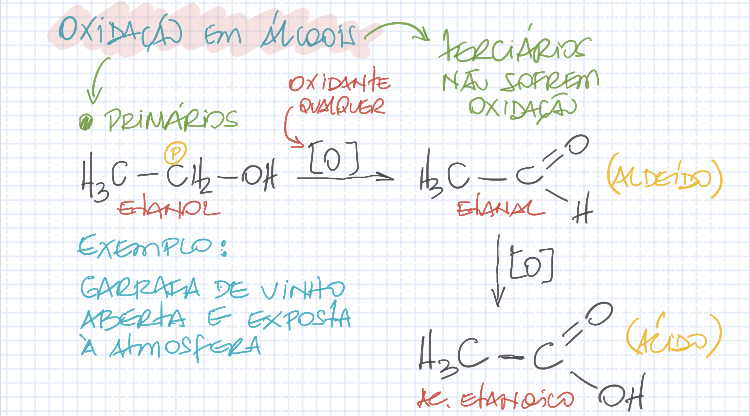 OXIDAÇÃO EM ÁLCOOIS
TERCIÁRIOS
NÃO SOFREM
OXIDAÇÃO
OXIDANTE
QUALQUER
• PRIMÁRIOS
P
H₃C – CH₂ – OH
[O]
H₃C – C
O
H
(ALDEÍDO)
ETANOL
ETANAL
EXEMPLO:
GARRAFA DE VINHO
ABERTA E EXPOSTA
À ATMOSFERA
[O]
H₃C – C
O
OH
(ÁCIDO)
AC. ETANOICO